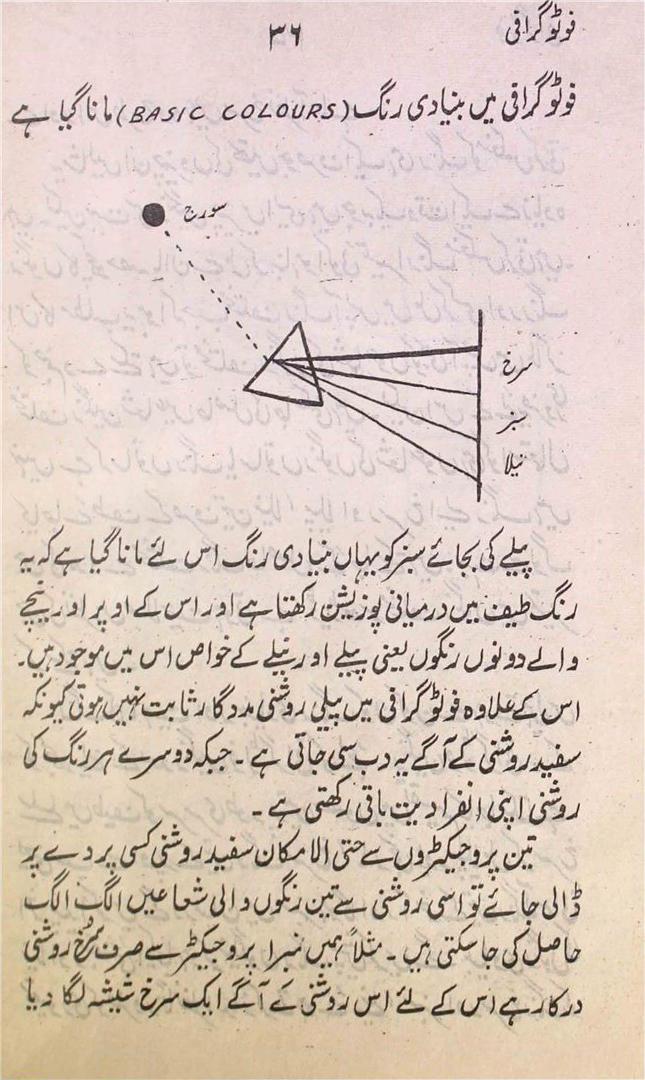 فوٹوگرافی
۳۶
فوٹوگرافی میں بنیادی رنگ (BASIC COLOURS) مانا گیا ہے
سورج
سرخ
سبز
نیلا
پیلے کی بجائے سبز کو یہاں بنیادی رنگ اس لئے مانا گیا ہے کہ یہ
رنگ طیف میں درمیانی پوزیشن رکھتا ہے اور اس کے اوپر اور نیچے
والے دونوں رنگوں یعنی پیلے اور نیلے کے خواص اس میں موجود ہیں۔
اس کے علاوہ فوٹوگرافی میں پیلی روشنی مددگار ثابت نہیں ہوتی کیونکہ
سفید روشنی کے آگے یہ دب سی جاتی ہے۔ جبکہ دوسرے ہر رنگ کی
روشنی اپنی انفرادیت باقی رکھتی ہے۔
تین پروجیکٹروں سے حتی الامکان سفید روشنی کسی پردے پر
ڈالی جائے تو اسی روشنی سے تین رنگوں والی شعاعیں الگ الگ
حاصل کی جاسکتی ہیں۔ مثلاً ہمیں نمبر۱ پروجیکٹر سے صرف سُرخ روشنی
درکار ہے اس کے لئے اس روشنی کے آگے ایک سرخ شیشہ لگا دیا